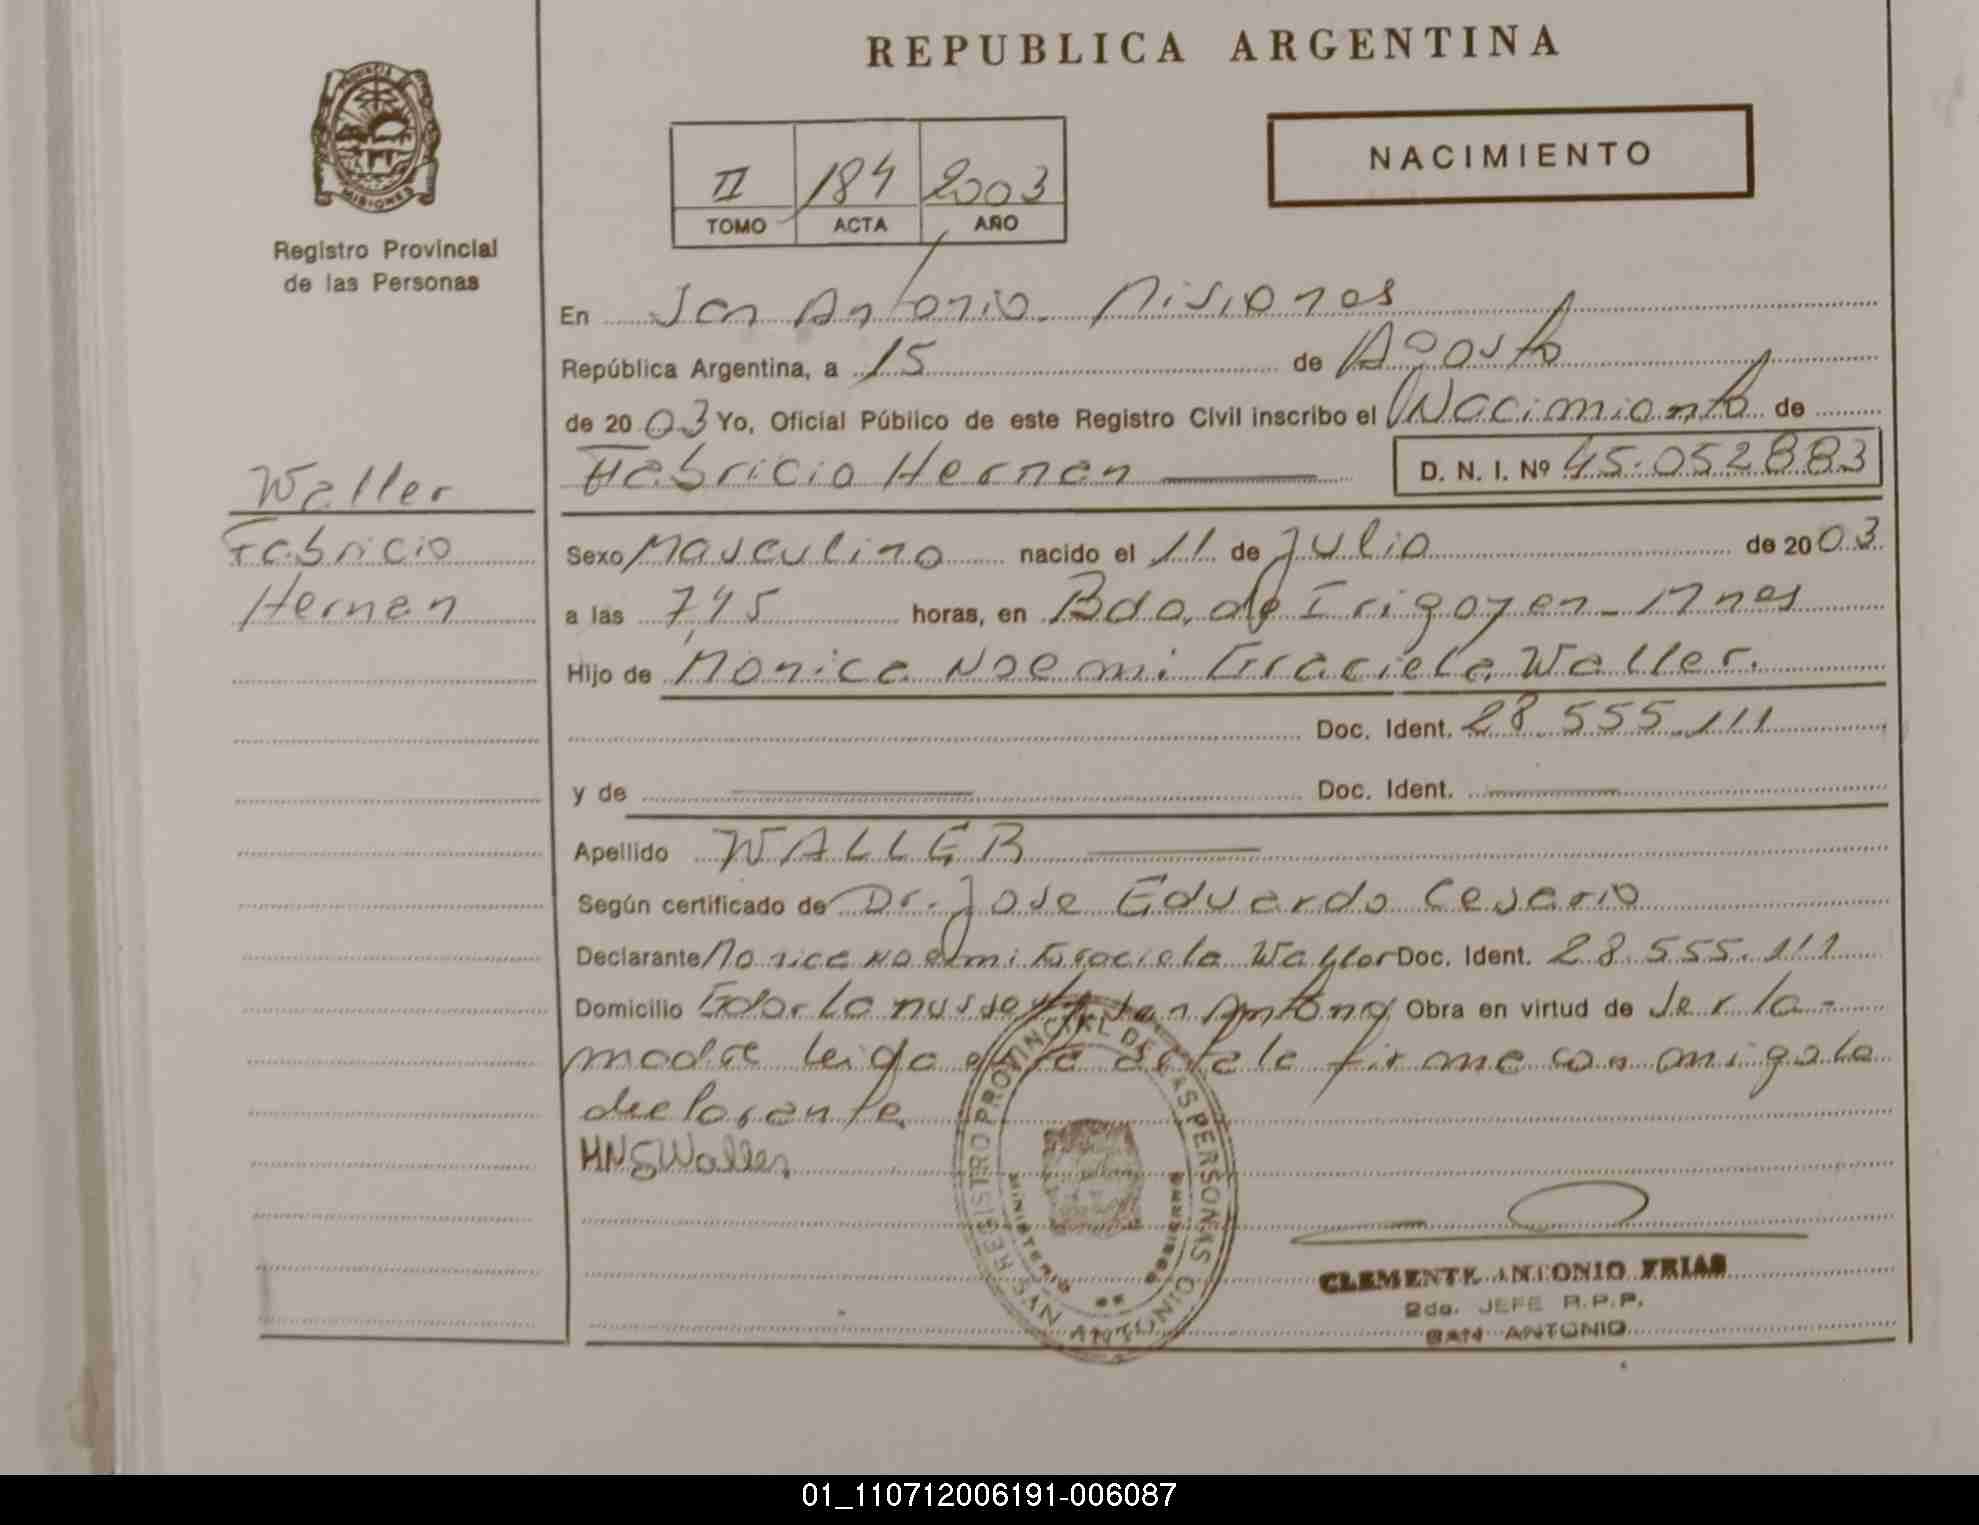 REPUBLICA ARGENTINA
NACIMIENTO
II 184 2003
TOMO ACTA AÑO
PROVINCIA DE
MISIONES
Registro Provincial
de las Personas
En San Antonio Misiones
República Argentina, a 15 de Agosto
de 2003 Yo, Oficial Público de este Registro Civil inscribo el Nacimiento de
Fabricio Hernan D. N. I. Nº 45.052883
Waller
Fabricio
Hernan
Sexo Masculino nacido el 11 de Julio de 2003
a las 7,45 horas, en Bdo. de Irigoyen - Mnes
Hijo de Monica Noemi Graciela Waller.
Doc. Ident. 28.555.111
y de Doc. Ident.
Apellido WALLER
Según certificado de Dr. Jose Eduardo Cesario
Declarante Monica Noemi Graciela Waller Doc. Ident. 28.555.111
Domicilio San Antonio Obra en virtud de ser la
madre leida esta acta la firma con migo la
declarante
MNGWaller
REGISTRO PROVINCIAL DE LAS PERSONAS
SAN ANTONIO
MINISTERIO DE GOBIERNO
CLEMENTE ANTONIO FRIAS
2do. JEFE R.P.P.
SAN ANTONIO
01_110712006191-006087